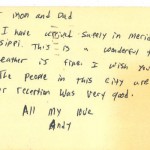 mom and Dad
I have arrived safely in Meri
sippi. This is a wonderful
eather is fine. I wish you
The people in this city are
ur reception was very good.
All my love
Andy